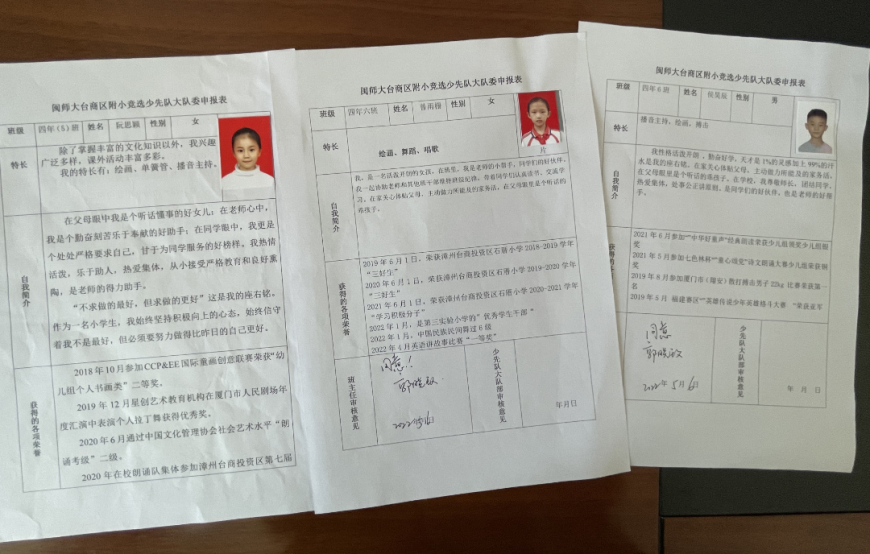 闽师大台商区附小竞选少先队大队委申报表
班级 四年(5)班 姓名 阮思颖 性别 女
特长
除了掌握丰富的文化知识以外，我兴趣
广泛多样，课外活动丰富多彩。
我的特长有：绘画、单簧管、播音主持。
自我简介
在父母眼中我是个听话懂事的好女儿；在老师心中，
我是个勤奋刻苦乐于奉献的好助手；在同学眼中，我更是
个处处严格要求自己，甘于为同学服务的好榜样。我热情
活泼，乐于助人，热爱集体，从小接受严格教育和良好熏
陶，是老师的得力助手。
“不求做的最好，但求做的更好”这是我的座右铭。
作为一名小学生，我始终坚持积极向上的心态，始终信守
着我不是最好，但必须要努力做得比昨日的自己更好。
获得的各项荣誉
2018年10月参加CCP&EE国际童画创意联赛荣获“幼
儿组个人书画类”二等奖。
2019年12月星创艺术教育机构在厦门市人民剧场年
度汇演中表演个人拉丁舞获得优秀奖。
2020年6月通过中国文化管理协会社会艺术水平“朗
诵考级”二级。
2020年在校朗诵队集体参加漳州台商投资区第七届
闽师大台商区附小竞选少先队大队委申报表
班级 四年六班 姓名 性别 女
特长 绘画、舞蹈、唱歌
片
自我简介
我，是一名活泼开朗的女孩。在班里，我是老师的小帮手，同学们的好伙伴。
习，在家关心体贴父母，主动做力所能及的家务活，在父母眼里是个听话的
乖孩子。
获得的各项荣誉
2019年6月1日，荣获漳州台商投资区石塘小学2018-2019学年
“三好生”
2020年6月1日，荣获漳州台商投资区石塘小学2019-2020学年
“三好生”
2021年6月1日，荣获漳州台商投资区石塘小学2020-2021学年
“学习积极分子”
2022年1月，是第三实验小学的“优秀学生干部”
2022年1月，中国民族民间舞过6级
2022年4月英语讲故事比赛“一等奖”
班主任审核意见
同意！
少先队大队部审核意见
年月日
闽师大台商区附小竞选少先队大队委申报表
班级 四年6班 姓名 性别 男
特长 播音主持、绘画、搏击
自我简介
我性格活泼开朗，勤奋好学，天才是1%的灵感加上99%的汗
水是我的座右铭。在家关心体贴父母，主动做力所能及的家务活，
在父母眼里是个听话的乖孩子。在学校，我尊敬师长，团结同学，
热爱集体，处事公正讲原则，是同学们的好伙伴，也是老师的好帮
手。
2021年6月参加“中华好童声”经典朗读荣获少儿组领奖少儿组银
奖
2021年5月参加七色林杯“童心颂党”诗文朗诵大赛少儿组荣获铜
奖
同意
2022年5月6日
少先队大队部审核意见
年 月 日